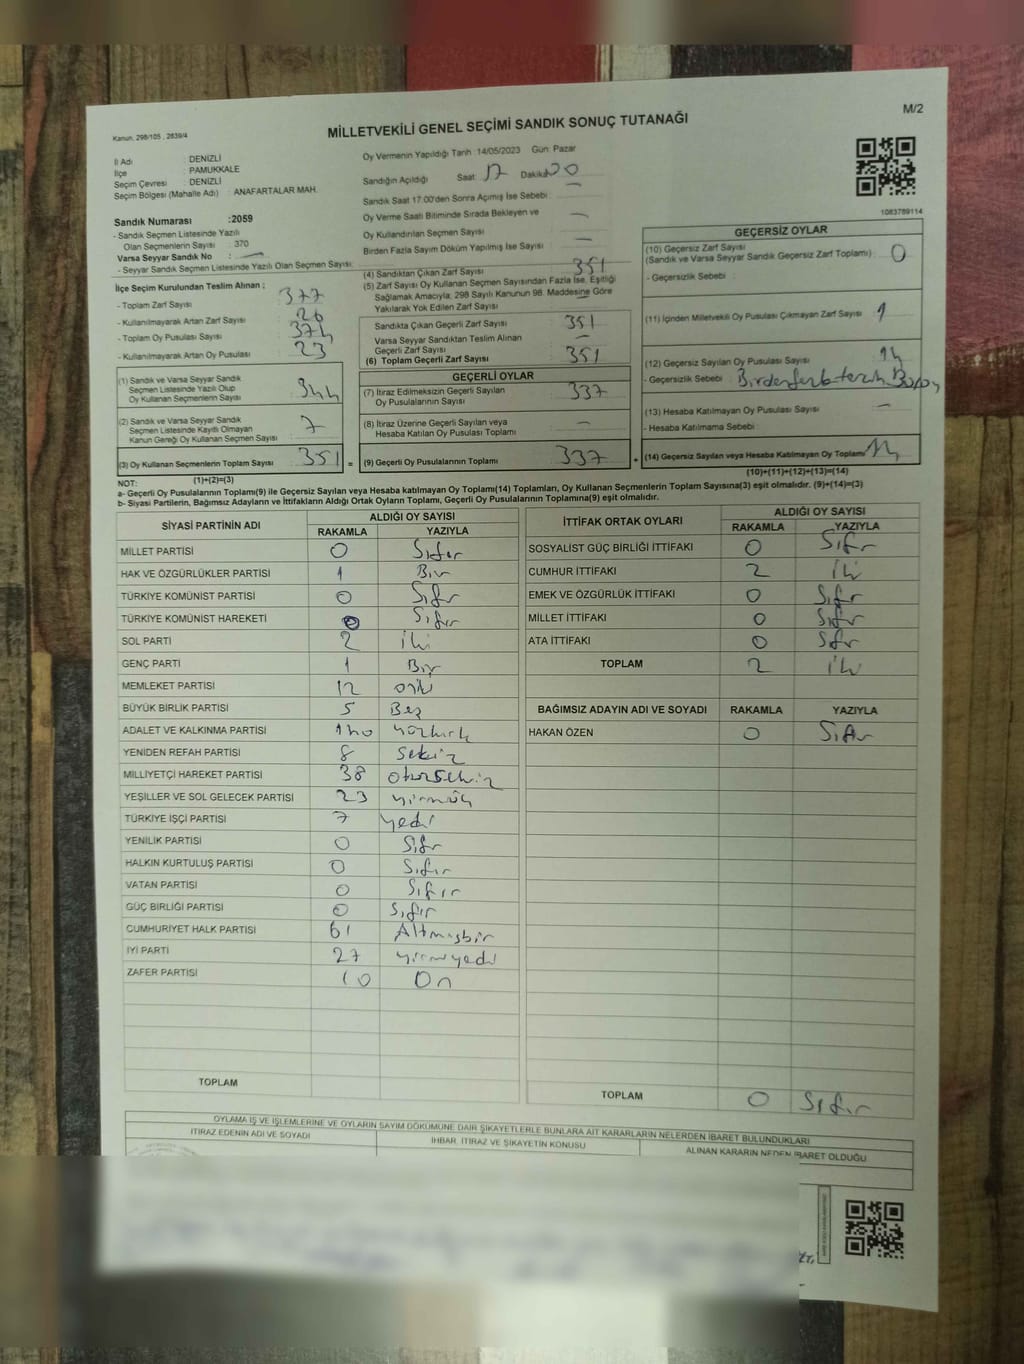 M/2
Kanun, 298/105 , 2839/4
MİLLETVEKİLİ GENEL SEÇİMİ SANDIK SONUÇ TUTANAĞI
İl Adı : DENİZLİ
İlçe : PAMUKKALE
Seçim Çevresi : DENİZLİ
Seçim Bölgesi (Mahalle Adı) : ANAFARTALAR MAH.
Sandık Numarası :2059
- Sandık Seçmen Listesinde Yazılı
Olan Seçmenlerin Sayısı : 370
Varsa Seyyar Sandık No : —
- Seyyar Sandık Seçmen Listesinde Yazılı Olan Seçmen Sayısı:
Oy Vermenin Yapıldığı Tarih :14/05/2023 Gün: Pazar
Sandığın Açıldığı Saat: 17 Dakika: 00
Sandık Saat 17:00'den Sonra Açımış İse Sebebi : —
Oy Verme Saati Bitiminde Sırada Bekleyen ve
Oy Kullandırılan Seçmen Sayısı : —
Birden Fazla Sayım Döküm Yapılmış İse Sayısı : —
1083789114
İlçe Seçim Kurulundan Teslim Alınan ;
- Toplam Zarf Sayısı : 377
- Kullanılmayarak Artan Zarf Sayısı : 26
- Toplam Oy Pusulası Sayısı : 374
- Kullanılmayarak Artan Oy Pusulası : 23
(1) Sandık ve Varsa Seyyar Sandık
Seçmen Listesinde Yazılı Olup
Oy Kullanan Seçmenlerin Sayısı : 344
(2) Sandık ve Varsa Seyyar Sandık
Seçmen Listesinde Kayıtlı Olmayan
Kanun Gereği Oy Kullanan Seçmen Sayısı : 7
(3) Oy Kullanan Seçmenlerin Toplam Sayısı : 351 =
(1)+(2)=(3)
(4) Sandıktan Çıkan Zarf Sayısı : 351
(5) Zarf Sayısı Oy Kullanan Seçmen Sayısından Fazla İse, Eşitliği
Sağlamak Amacıyla, 298 Sayılı Kanunun 98. Maddesine Göre
Yakılarak Yok Edilen Zarf Sayısı : —
Sandıkta Çıkan Geçerli Zarf Sayısı : 351
Varsa Seyyar Sandıktan Teslim Alınan
Geçerli Zarf Sayısı : —
(6) Toplam Geçerli Zarf Sayısı : 351
GEÇERLİ OYLAR
(7) İtiraz Edilmeksizin Geçerli Sayılan
Oy Pusulalarının Sayısı : 337
(8) İtiraz Üzerine Geçerli Sayılan veya
Hesaba Katılan Oy Pusulası Toplamı : —
(9) Geçerli Oy Pusulalarının Toplamı : 337 +
GEÇERSİZ OYLAR
(10) Geçersiz Zarf Sayısı
(Sandık ve Varsa Seyyar Sandık Geçersiz Zarf Toplamı) : 0
- Geçersizlik Sebebi :
(11) İçinden Milletvekili Oy Pusulası Çıkmayan Zarf Sayısı : 1
(12) Geçersiz Sayılan Oy Pusulası Sayısı :
- Geçersizlik Sebebi : Birden fazla tercih
(13) Hesaba Katılmayan Oy Pusulası Sayısı : —
- Hesaba Katılmama Sebebi :
(14) Geçersiz Sayılan veya Hesaba Katılmayan Oy Toplamı : 14
(10)+(11)+(12)+(13)=(14)
NOT:
a- Geçerli Oy Pusulalarının Toplamı(9) ile Geçersiz Sayılan veya Hesaba katılmayan Oy Toplamı(14) Toplamları, Oy Kullanan Seçmenlerin Toplam Sayısına(3) eşit olmalıdır. (9)+(14)=(3)
b- Siyasi Partilerin, Bağımsız Adayların ve İttifakların Aldığı Ortak Oyların Toplamı, Geçerli Oy Pusulalarının Toplamına(9) eşit olmalıdır.
SİYASİ PARTİNİN ADI ALDIĞI OY SAYISI
RAKAMLA YAZIYLA
MİLLET PARTİSİ 0 Sıfır
HAK VE ÖZGÜRLÜKLER PARTİSİ 1 Bir
TÜRKİYE KOMÜNİST PARTİSİ 0 Sıfır
TÜRKİYE KOMÜNİST HAREKETİ 0 Sıfır
SOL PARTİ 2 iki
GENÇ PARTİ 1 Bir
MEMLEKET PARTİSİ 12 oniki
BÜYÜK BİRLİK PARTİSİ 5 Beş
ADALET VE KALKINMA PARTİSİ 140 yüzkırk
YENİDEN REFAH PARTİSİ 8 sekiz
MİLLİYETÇİ HAREKET PARTİSİ 38 otuzsekiz
YEŞİLLER VE SOL GELECEK PARTİSİ 23 yirmiüç
TÜRKİYE İŞÇİ PARTİSİ 7 yedi
YENİLİK PARTİSİ 0 Sıfır
HALKIN KURTULUŞ PARTİSİ 0 Sıfır
VATAN PARTİSİ 0 Sıfır
GÜÇ BİRLİĞİ PARTİSİ 0 Sıfır
CUMHURİYET HALK PARTİSİ 61 Altmışbir
İYİ PARTİ 27 yirmiyedi
ZAFER PARTİSİ 10 On
TOPLAM
İTTİFAK ORTAK OYLARI ALDIĞI OY SAYISI
RAKAMLA YAZIYLA
SOSYALİST GÜÇ BİRLİĞİ İTTİFAKI 0 Sıfır
CUMHUR İTTİFAKI 2 iki
EMEK VE ÖZGÜRLÜK İTTİFAKI 0 Sıfır
MİLLET İTTİFAKI 0 Sıfır
ATA İTTİFAKI 0 Sıfır
TOPLAM 2 iki
BAĞIMSIZ ADAYIN ADI VE SOYADI RAKAMLA YAZIYLA
HAKAN ÖZEN 0 Sıfır
TOPLAM 0 Sıfır
OYLAMA İŞ VE İŞLEMLERİNE VE OYLARIN SAYIM DÖKÜMÜNE DAİR ŞİKAYETLERLE BUNLARA AİT KARARLARIN NELERDEN İBARET BULUNDUKLARI
İTİRAZ EDENİN ADI VE SOYADI İHBAR, İTİRAZ VE ŞİKAYETİN KONUSU ALINAN KARARIN NEDEN İBARET OLDUĞU